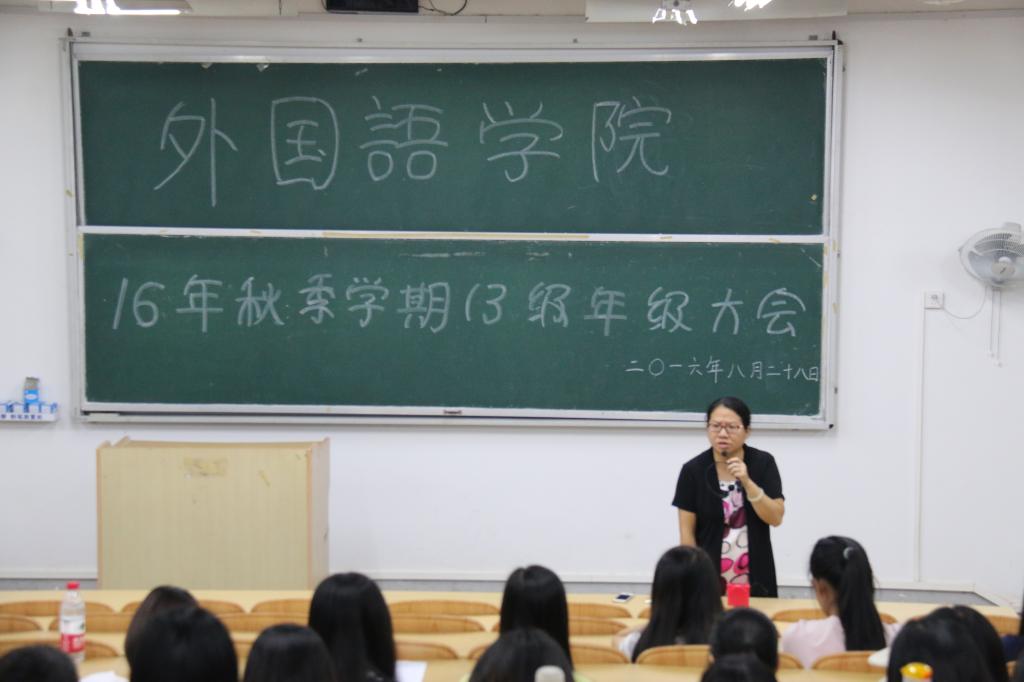 外国語学院
16年秋季学期13级年级大会
二〇一六年八月二十八日